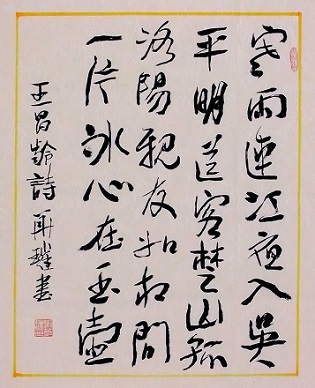 寒雨連江夜入吳
平明送客楚山孤
洛陽親友如相問
一片冰心在玉壺
王昌齡詩 書